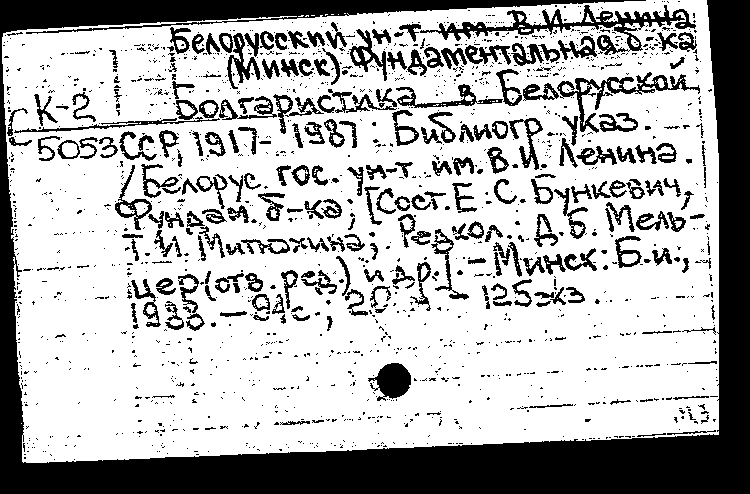 Белорусский ун-т им. В.И. Ленина
(Минск). Фундаментальная б-ка
К-2 Болгаристика в Белорусской
5053 ССР, 1917-1987 : Библиогр. указ.
/ Белорус. гос. ун-т им. В.И. Ленина.
Фундам. б-ка; [Сост. Е.С. Бункевич,
Т.И. Митюхина; Редкол.: Д.Б. Мель-
цер (отв. ред.) и др.]. - Минск: Б.и.,
1988. - 94с.; 20 - 125экз.